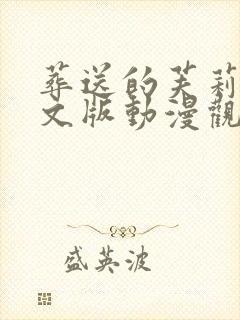 葬送的芙莉
文版動漫觀
盛英波